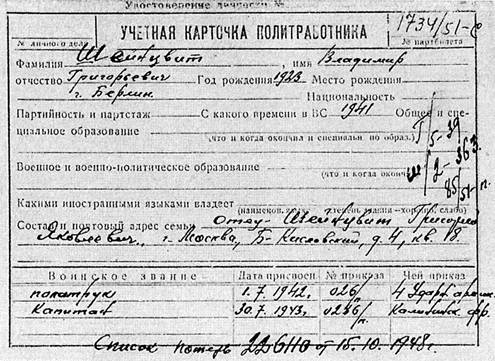 Удостоверение личности №
УЧЕТНАЯ КАРТОЧКА ПОЛИТРАБОТНИКА
1734/51-с
№ личного дела
№ партбилета
Фамилия Шейнцвит, имя Владимир
отчество Григорьевич Год рождения 1923 Место рождения
г. Берлин. Национальность
Партийность и партстаж С какого времени в ВС 1941 Общее и спе-
циальное образование
(что и когда окончил и специальн. по образ.)
Военное и военно-политическое образование
(что и когда окончил)
Какими иностранными языками владеет
(наименов. языка, степень знания — хор., пр., слабо)
Состав и почтовый адрес семьи Отец - Шейнцвит Григорий
Яковлевич, г. Москва, Б- Кисловский, д. 4, кв. 18.
Воинское звание Дата присвоен. № приказа Чей приказ
политрук 1. 7. 1942г. 026/п 4 Ударн. армии.
Капитан 30.7. 1943г. Калининск. фр.
Список потерь от 15. 10. 1948 г.